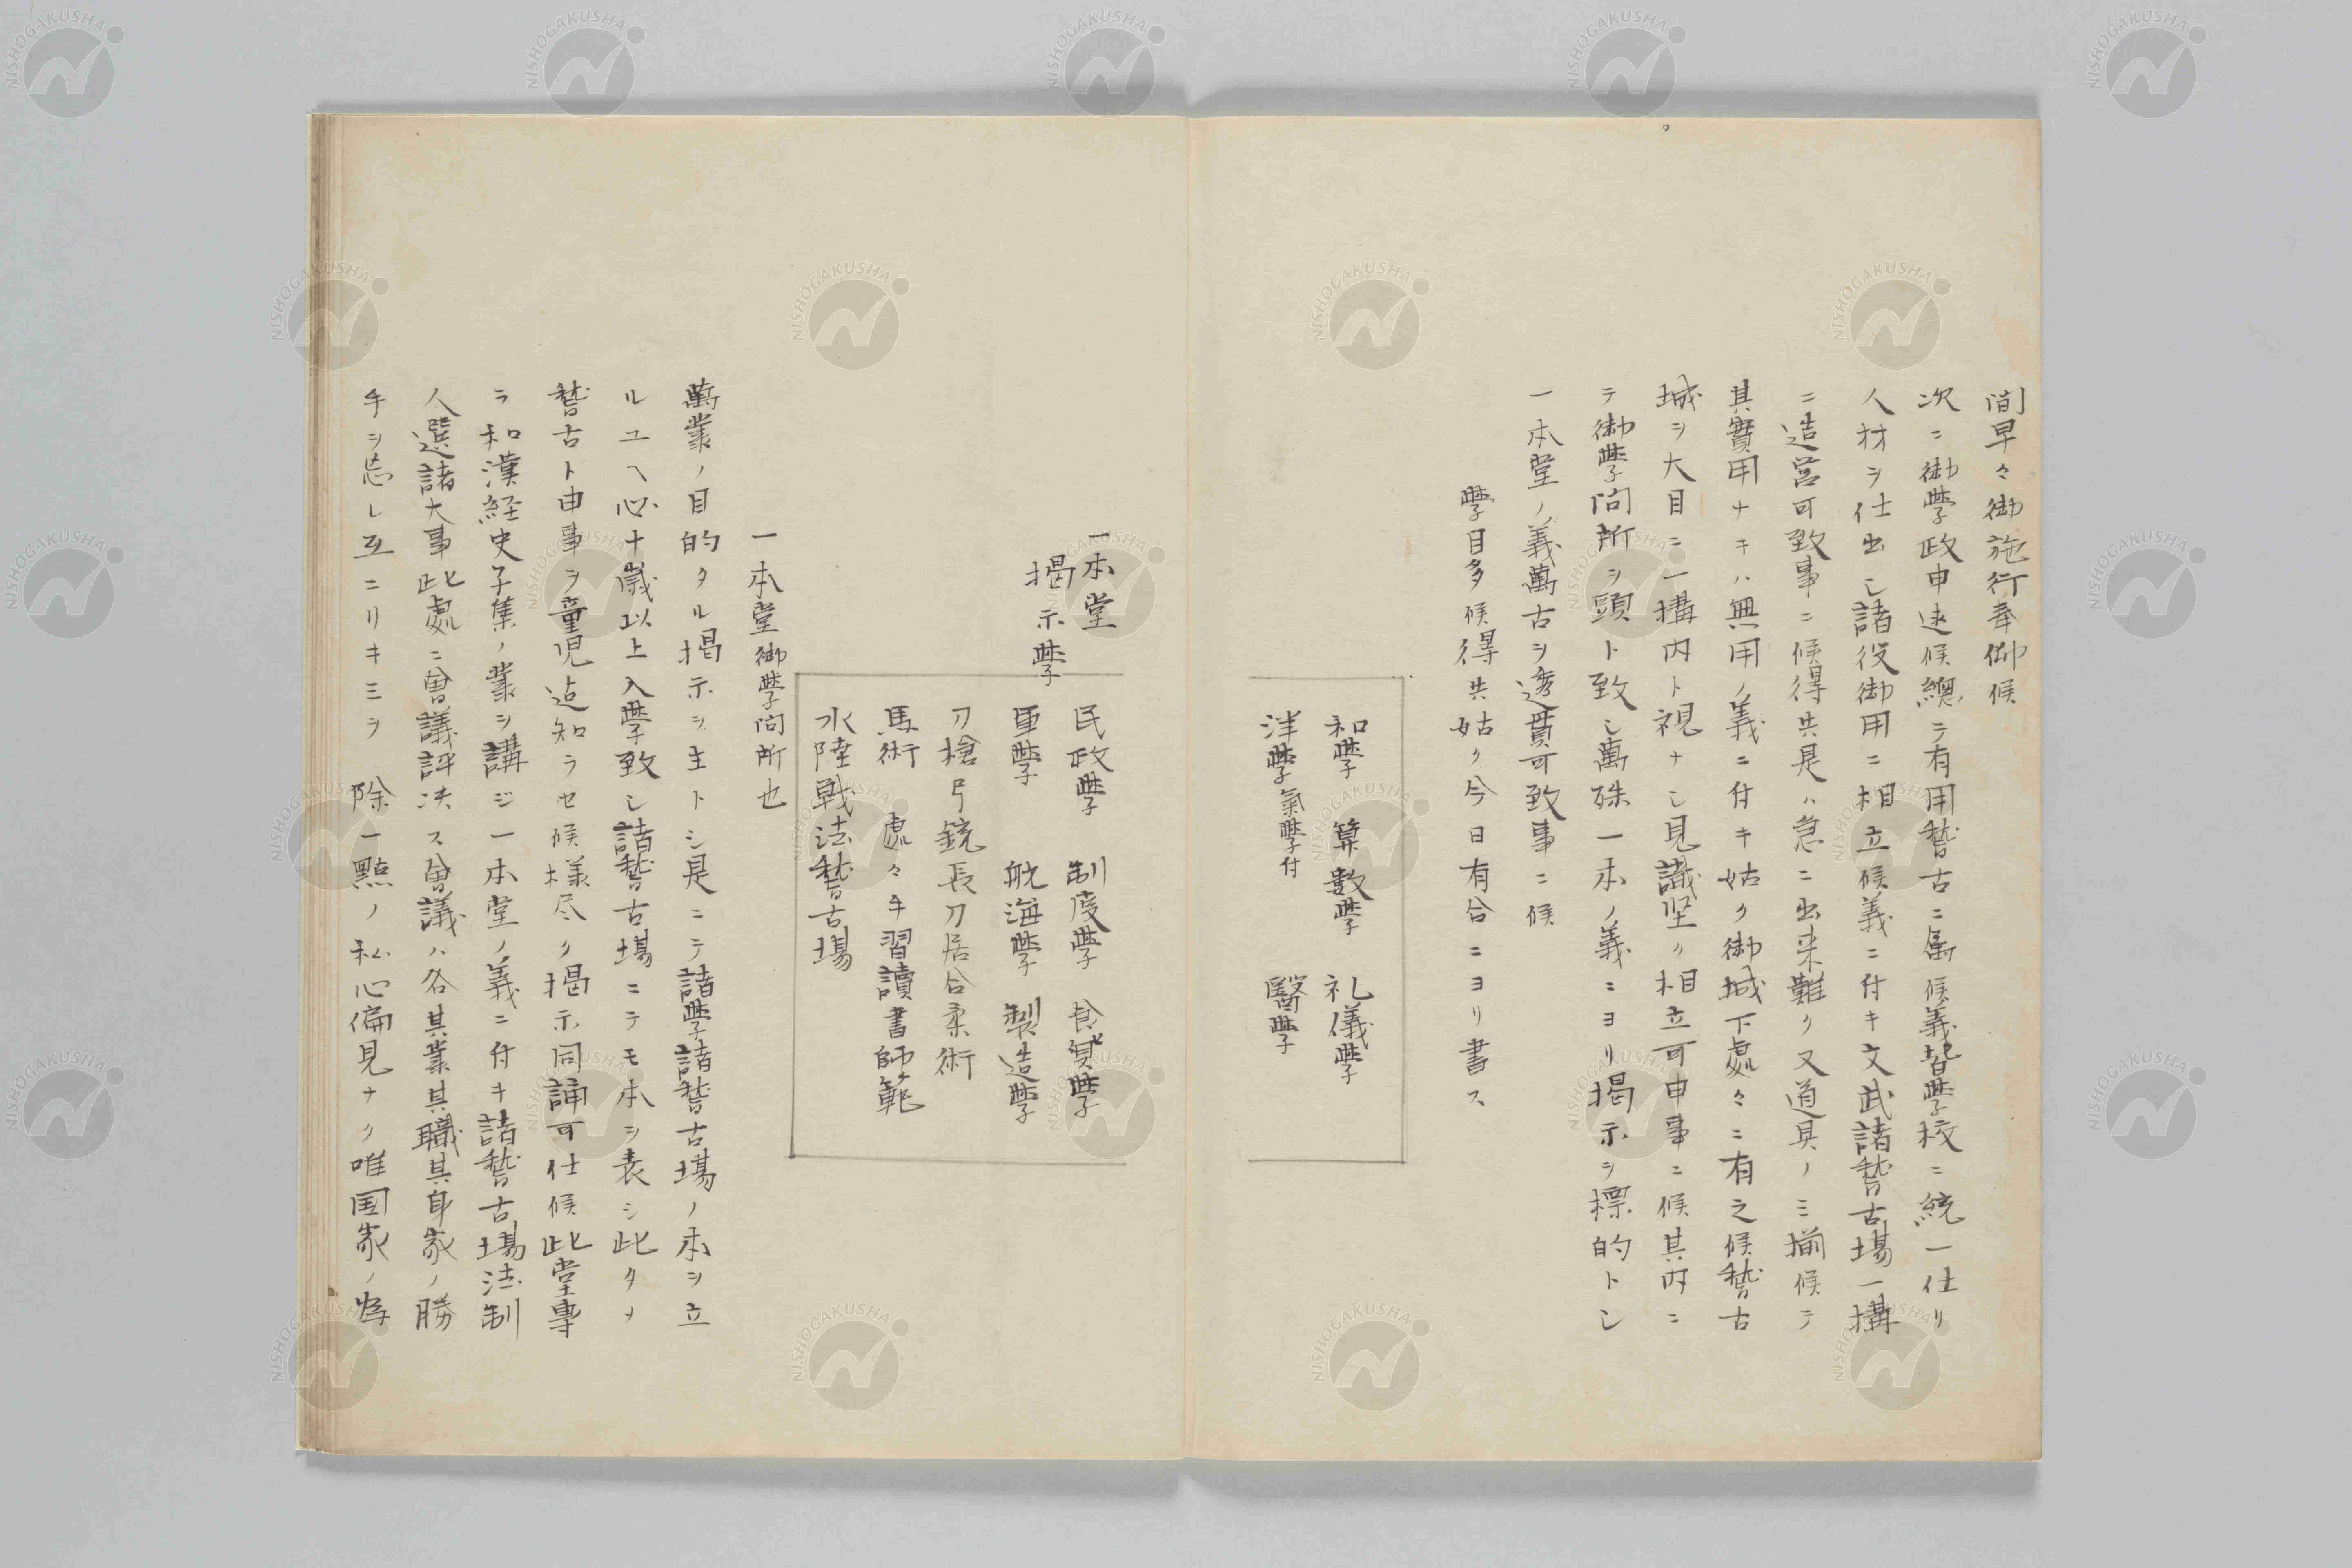 間早々御施行奉仰候
次ニ御學政申述候總テ有用稽古ニ属候義皆學校ニ統一仕リ
人材ヲ仕出シ諸役御用ニ相立候義ニ付キ文武諸稽古場一構
ニ造営可致事ニ候得共是ハ急ニ出来難ク又道具ノミ揃候テ
其實用ナキハ無用ノ義ニ付キ姑ク御城下處々ニ有之候稽古
城ヲ大目ニ一構内ト視ナシ見識坚ク相立可申事ニ候其内ニ
テ御學問所ヲ頭ト致シ萬殊一本ノ義ニヨリ掲示ヲ標的トシ
一本堂ノ義萬古ヲ透貫可致事ニ候
學目多候得共姑ク今日有合ニヨリ書ス
和學 算數學 礼儀學
洋學氣學付 醫學
一本堂
掲示學
民政學 制度學 食貨學
軍學 航海學 製造學
刀槍弓銃長刀居合柔術
馬術 處々手習讀書師範
水陸戦法稽古場
一本堂御學問所也
萬業ノ目的タル掲示ヲ主トシ是ニテ諸學諸稽古場ノ本ヲ立
ルユヘ心十歳以上入學致シ諸稽古場ニテモ本ヲ表シ此タメ
稽古ト申事ヲ童児迠知ラセ候様尽ク掲示同誦可仕候此堂専
ラ和漢経史子集ノ業ヲ講ジ一本堂ノ義ニ付キ諸稽古場法制
人選諸大事此處ニ會議評决ス會議ハ各其業其職其身家ノ勝
手ヲ忘レ互ニリキミヲ 除一點ノ私心偏見ナク唯国家ノ為
NISHOGAKUSHA